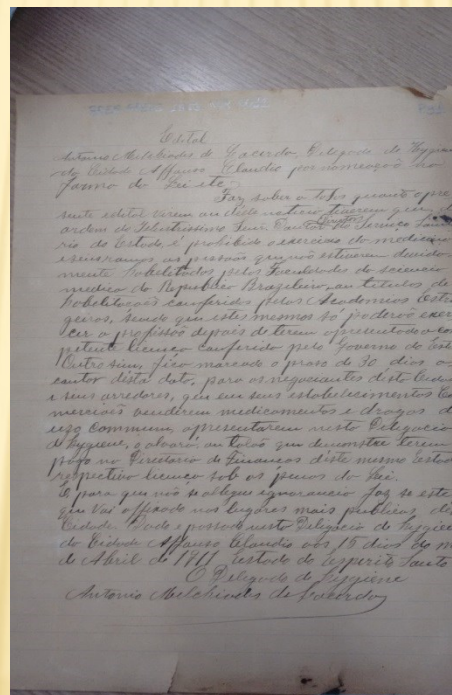 Edital
Antonio Melchiades de Lacerda, Delegado de Hygiene
da Cidade Affonso Claudio por nomeação na
forma da Lei etc.
Faz saber a todos quanto o pre
sente edital virem ou delle noticia tiverem que, d
ordem do Illustrissimo Senr. Doutor do Serviço Sani
rio do Estado, é prohibido o exercicio da medicina
as pessôas que não estiverem devida
mente habilitadas pelas Faculdades de sciencia
medica da Republica Brazileira, ou titulos de
habilitações conferidos pelas Academias Estra
geiras, sendo que estes mesmos só poderão exer
cer a profissão depois de terem apresentado a com
petente licença conferida pelo Governo do Est
Outro sim, fica marcado o praso de 30 dias a
contar desta data, para os negociantes desta Cidade
e seus arredores, que em seus estabelecimentos Co
merciais venderem medicamentos e drogas d
uzo commum, apresentarem nesta Delegacia
de Hygiene, o alvará, ou talão que demonstre terem
pago na Directoria de Finanças deste mesmo Estado
respectiva licença sob as penas da Lei.
E para que não se allegue ignorancia faz se este
que vai affixado nos lugares mais publicos de
Cidade. Dado e passado nesta Delegacia de Hygiene
da Cidade Affonso Claudio aos 15 dias do m
de Abril de 1911 Estado do Espirito Santo
O Delegado de Hygiene
Antonio Melchiades de Lacerda